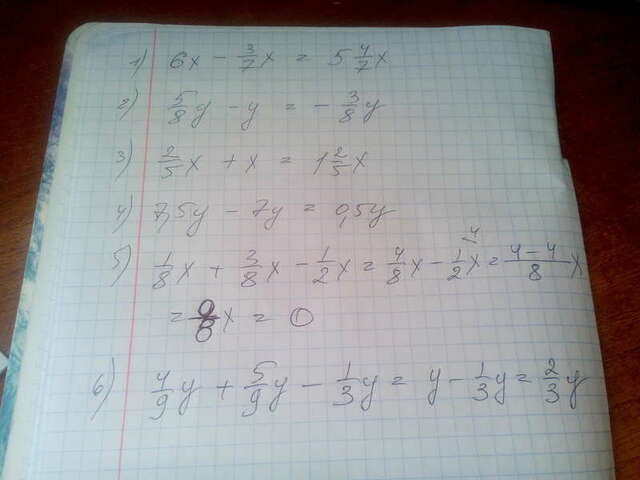 1) 6x - 3/7 x = 5 4/7 x
2) 5/8 y - y = - 3/8 y
3) 2/5 x + x = 1 2/5 x
4) 7,5y - 7y = 0,5y
5) 1/8 x + 3/8 x - 1/2 x = 4/8 x - 1/2 x ·4 = 4-4/8 x
= 0/8 x = 0
6) 4/9 y + 5/9 y - 1/3 y = y - 1/3 y = 2/3 y